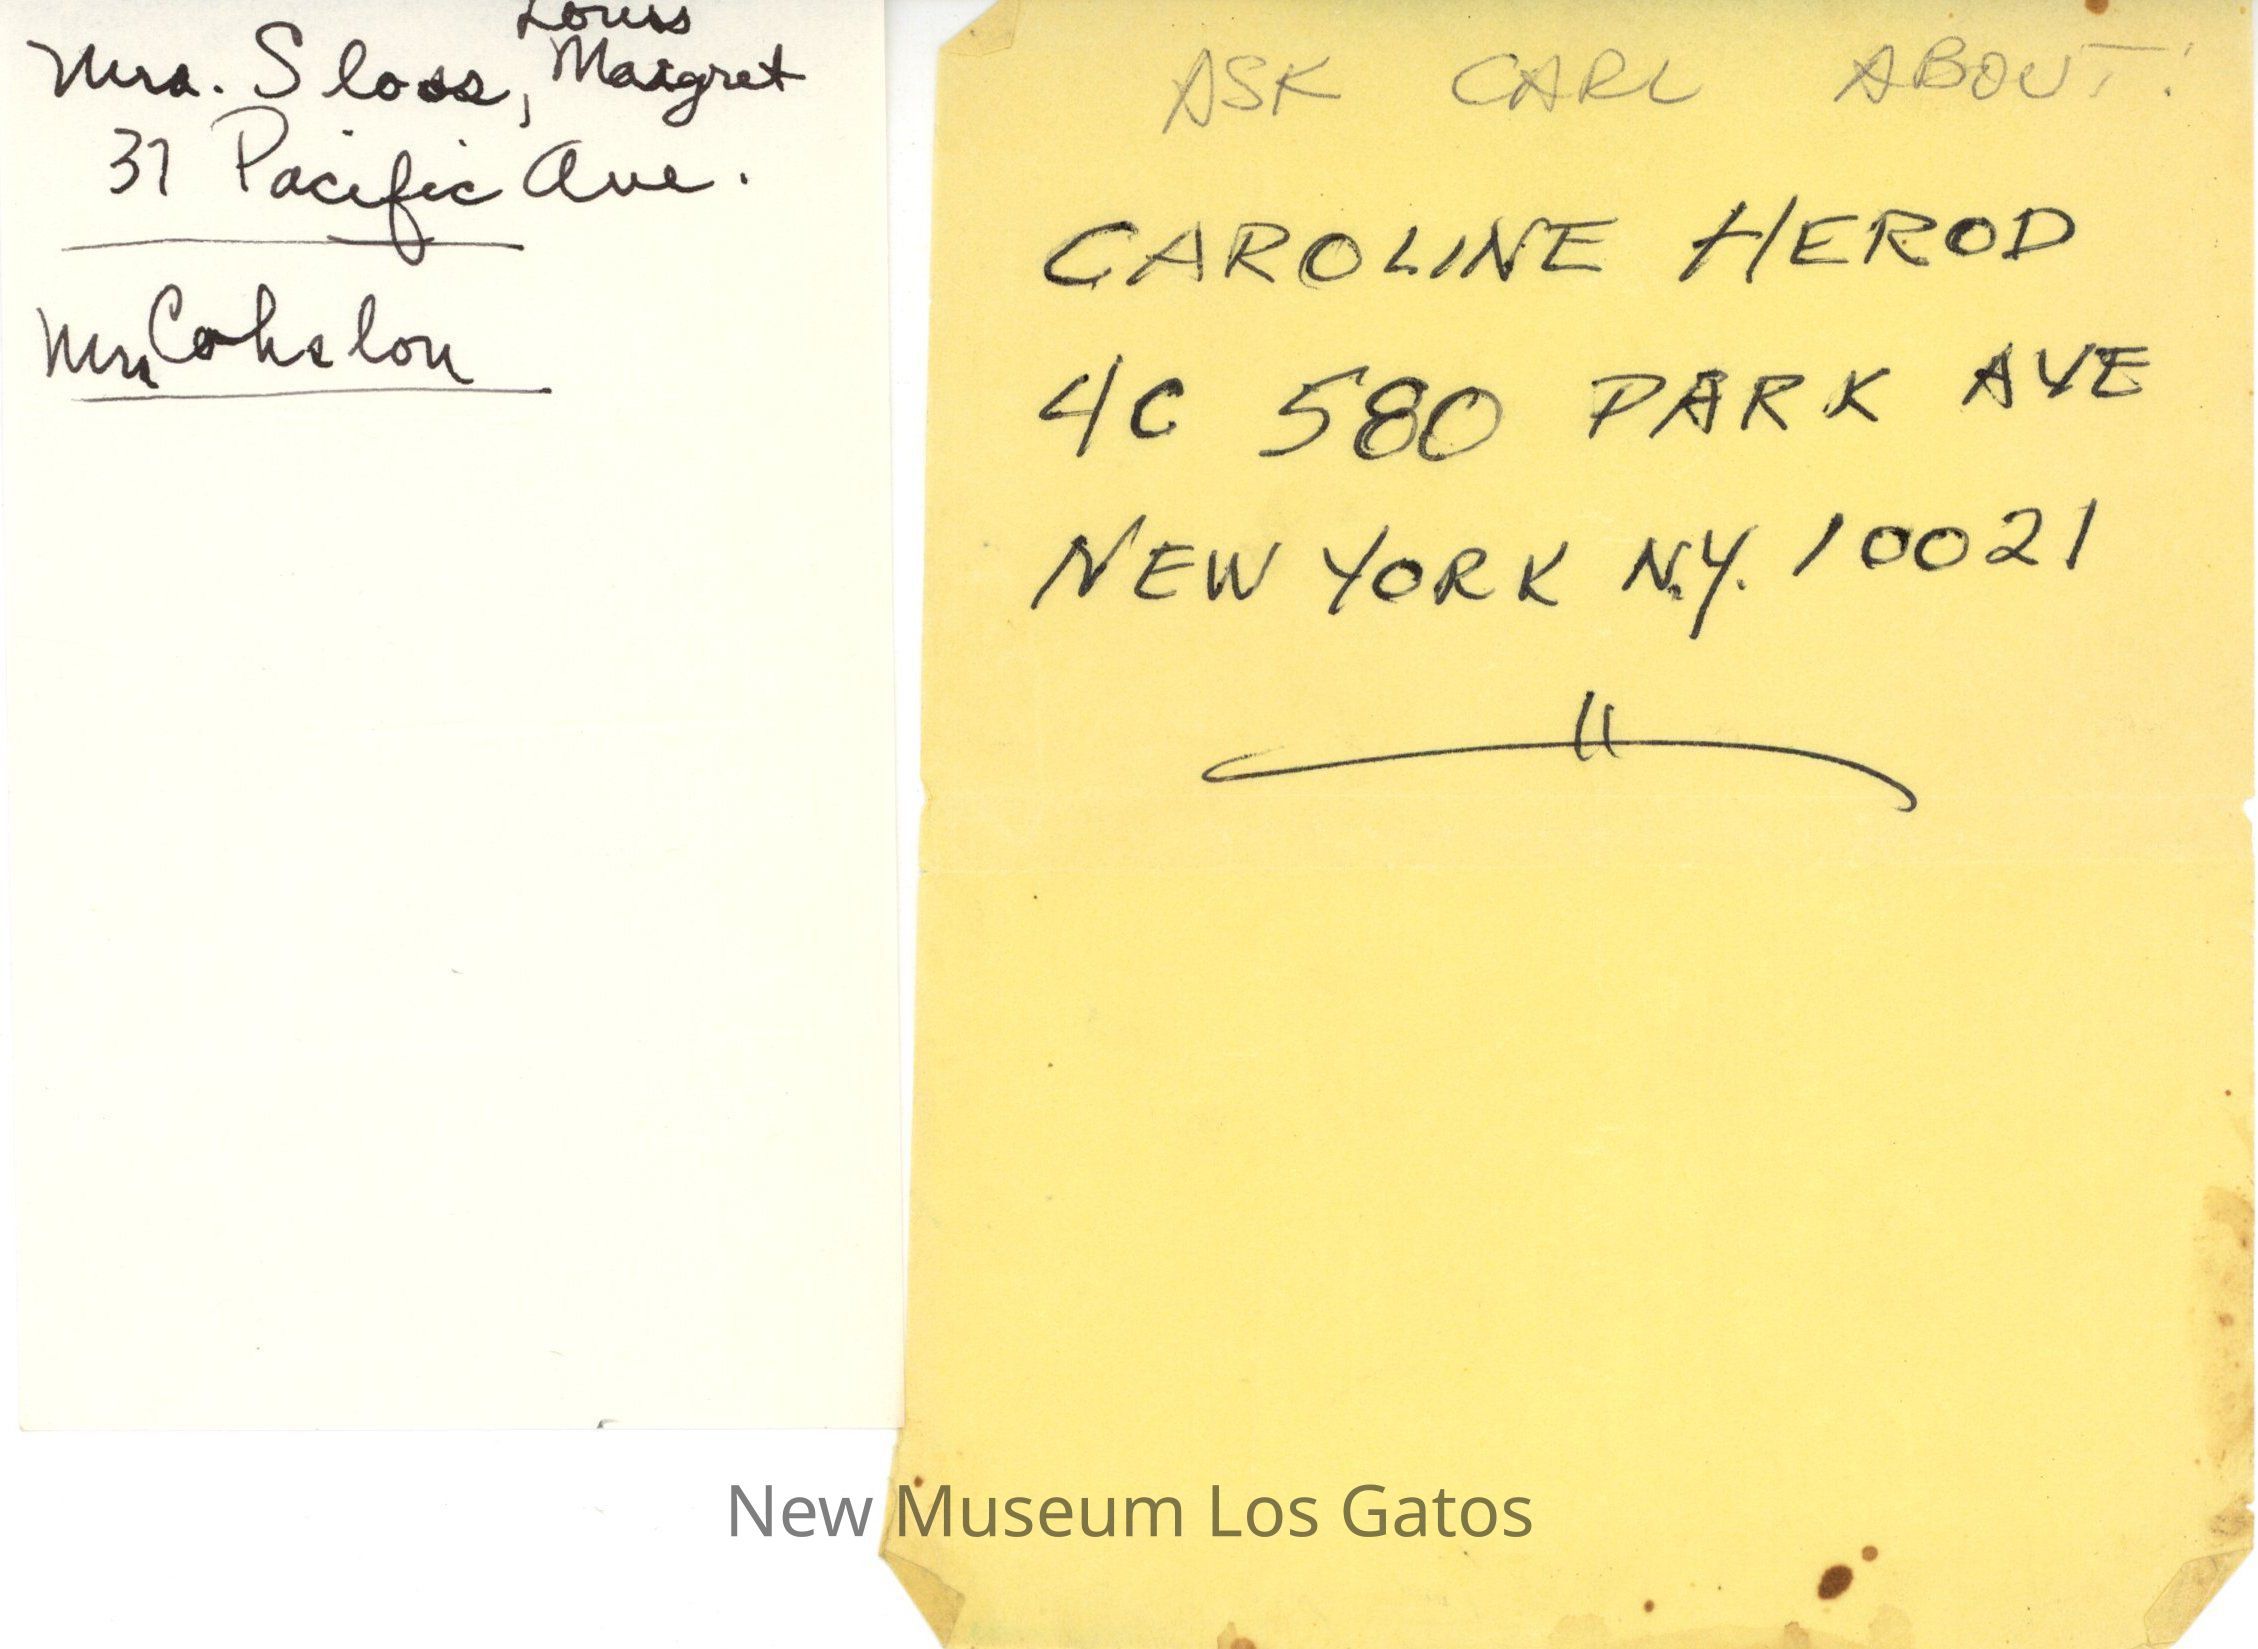 Louis
Mrs. Sloss, Margret
37 Pacific Ave.
Mrs Cohelon
ASK CARL ABOUT:
CAROLINE HEROD
4C 580 PARK AVE
NEW YORK N.Y. 10021
New Museum Los Gatos